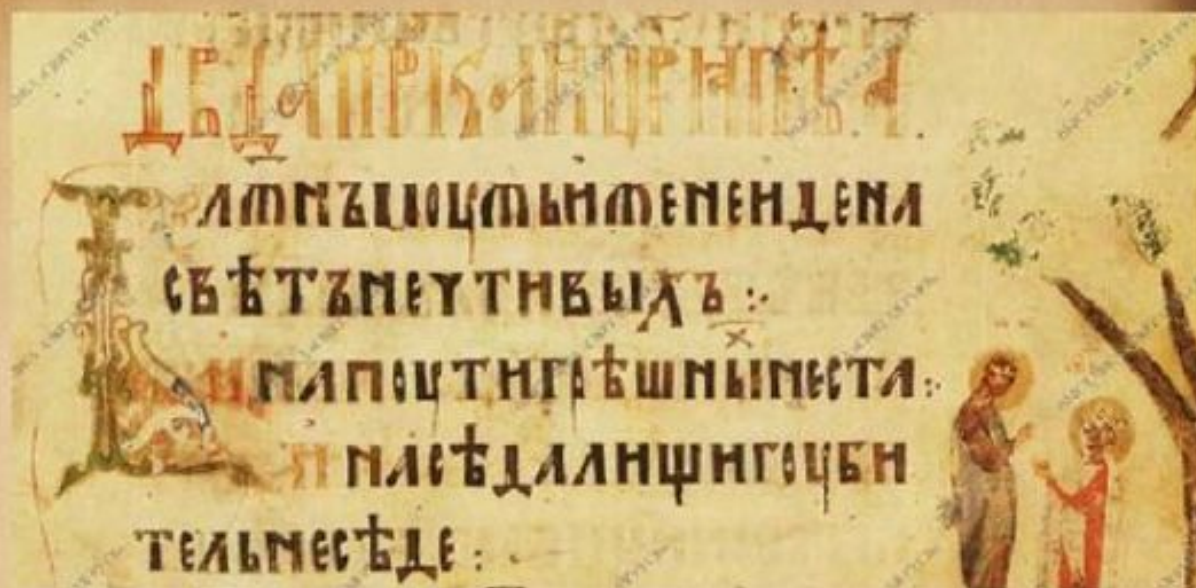 БЛЖНЪМОУЖЬИЖЕНЕИДЕНА
СВѢТЪНЕЧТИВЫХЪ :·
И НАПОУТИГРѢШНЫⷯНЕСТА :·
И НАСѢДАЛИЩИГОУБИ
ТЕЛЬНЕСѢДЕ :